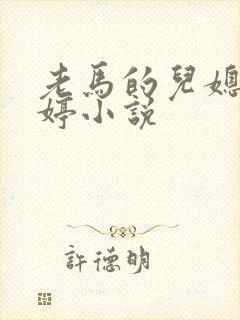 老馬的兒媳
婷小説
許德明